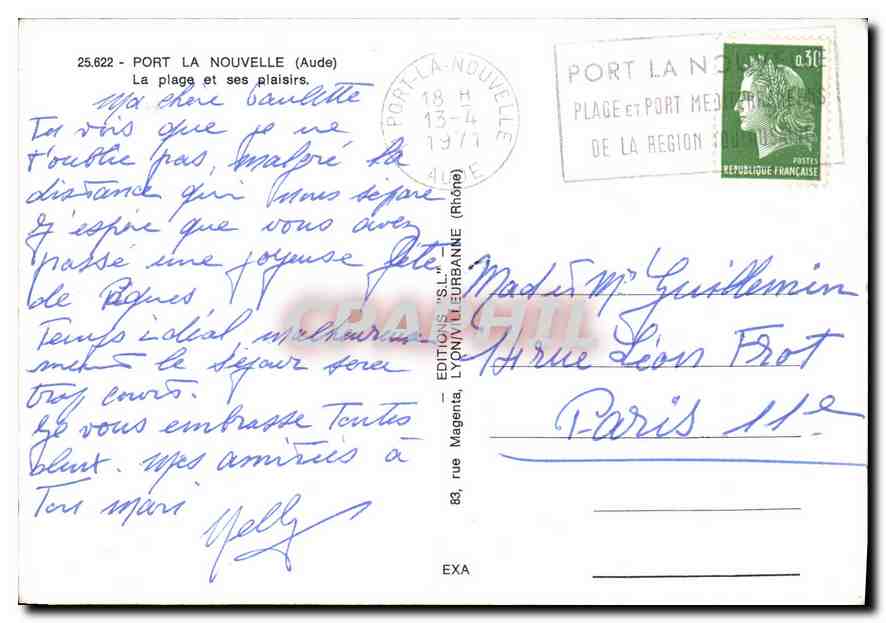 25.622 - PORT LA NOUVELLE (Aude)
La plage et ses plaisirs.
Ma chère Paulette
Tu vois que je ne
t'oublie pas, malgré la
distance qui nous sépare
J'espère que vous avez
passé une joyeuse fête
de Pâques
Temps idéal, malheureuse
ment le séjour sera
trop court.
Je vous embrasse toutes
deux. Mes amitiés à
Ton mari
Nelly
PORT-LA-NOUVELLE
18 H
13-4
1971
AUDE
PORT LA NOUVELLE
PLAGE ET PORT MEDITERRANEENS
DE LA REGION
0,30
POSTES
REPUBLIQUE FRANÇAISE
Mad et Mr Guillemin
14 rue Léon Frot
Paris 11e
— EDITIONS "S.L." —
83, rue Magenta, LYON/VILLEURBANNE (Rhône)
EXA
CPAPHIL